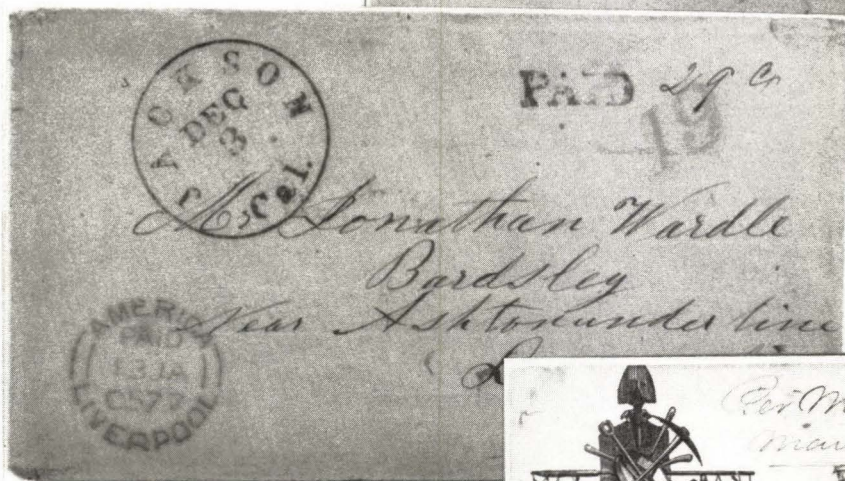 JACKSON
DEC
3
Cal.
PAID 29 Cts
19
Mr Jonathan Wardle
Bardsley
Near Ashton under line
AMERICA
PAID
13 JA
LIVERPOOL
Per